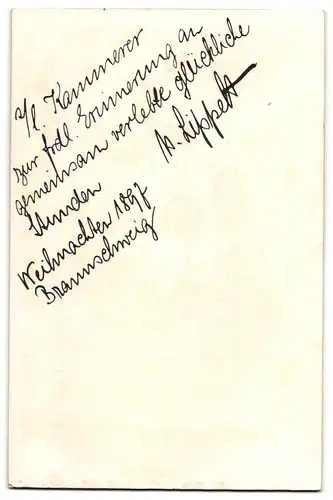 s/l. Kammerer
zur frdl. Erinnerung an
gemeinsam verlebte glückliche
Stunden
A. Lippelt
Weihnachten 1897
Braunschweig